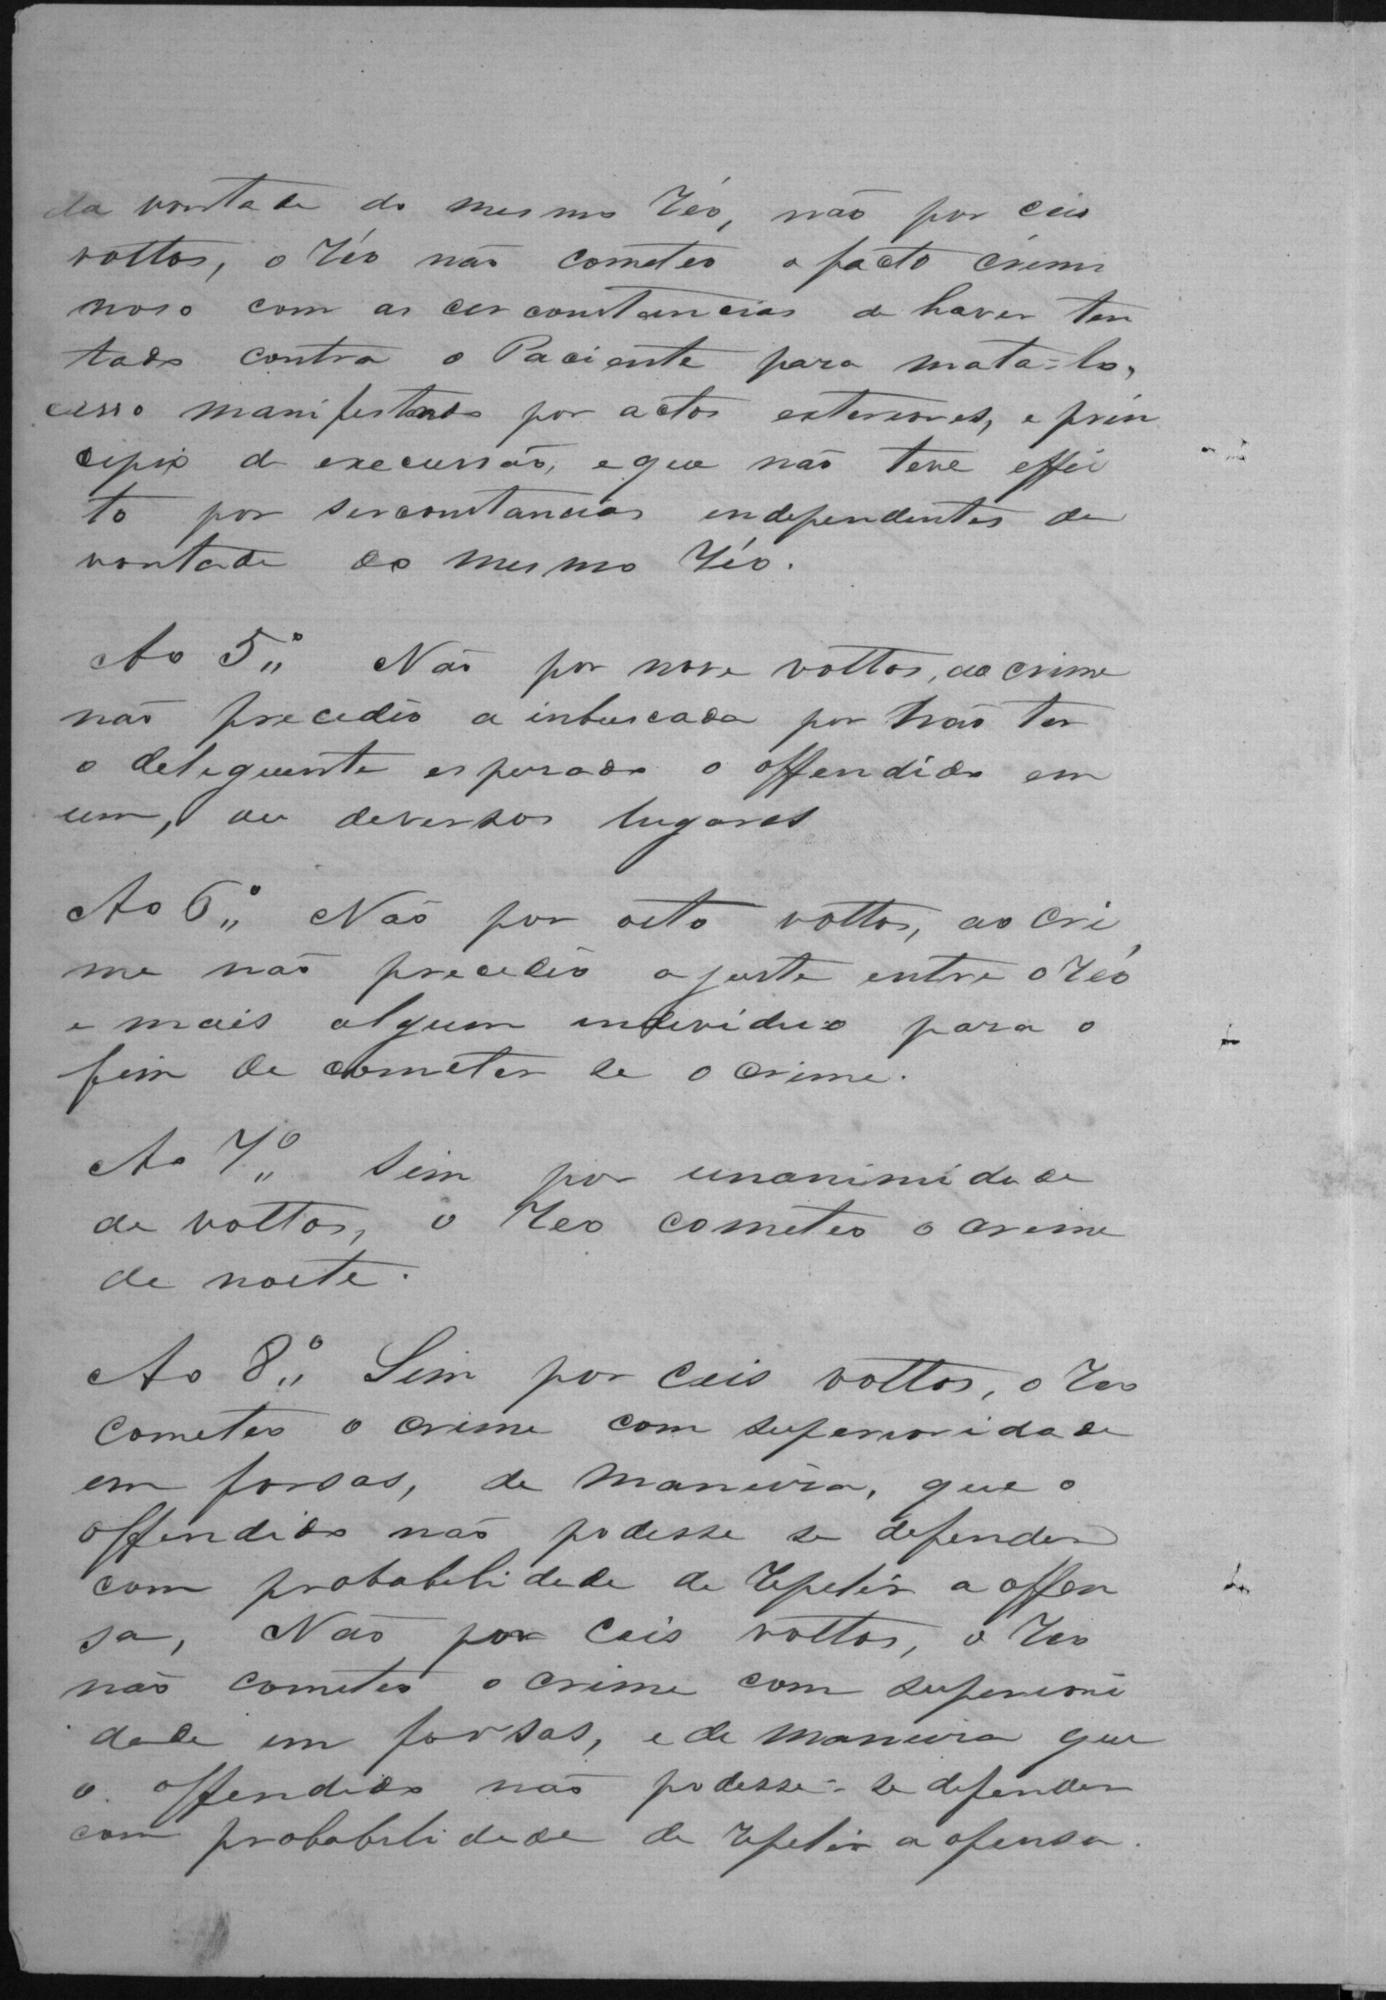 da vontade do mesmo Réo, não por ceis
vottos, o Réo não cometeo o facto crimi
noso com as cerconstancias de haver ten
tado contra o Paciente para mata-lo,
cesso manifestando por actos exteriores, e prin
cipio de execussão, e que não teve effei
to por serconstancias endependentes da
vontade do mesmo Réo.
Ao 5º Não por nove vottos, ao crime
não precedeo a inbuscada por não ter
o delequente esperado o offendido em
um, ou deversos lugares
Ao 6º Não por oito vottos, ao cri
me não precedeo ajuste entre o Réo
e mais algum endeviduo para o
fim de cometer se o crime.
Ao 7º Sim por unanimidade
de vottos, o Reo cometeo o crime
de noite.
Ao 8º Sim por ceis vottos, o Reo
cometeo o crime com superioridade
em forsas, de maneira, que o
offendido não podesse se defender
com probabelidade de repelir a offen
sa, Não por ceis vottos, o Reo
não cometeo o crime com superiori
dade em forsas, e de maneira que
o offendido não podesse-se defender
com probabelidade de repelir a ofensa.